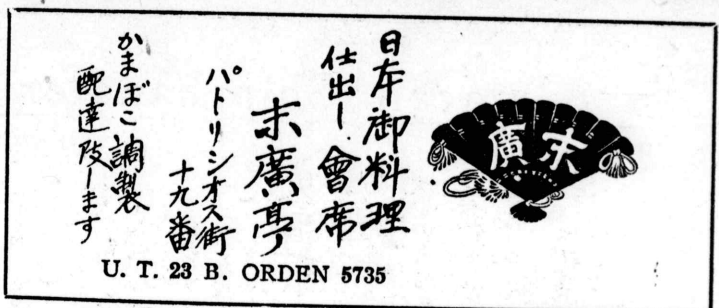 末廣
日本御料理
仕出し.會席
末廣亭
パトリシオス街
十九番
かまぼこ調製
配達致します
U. T. 23 B. ORDEN 5735